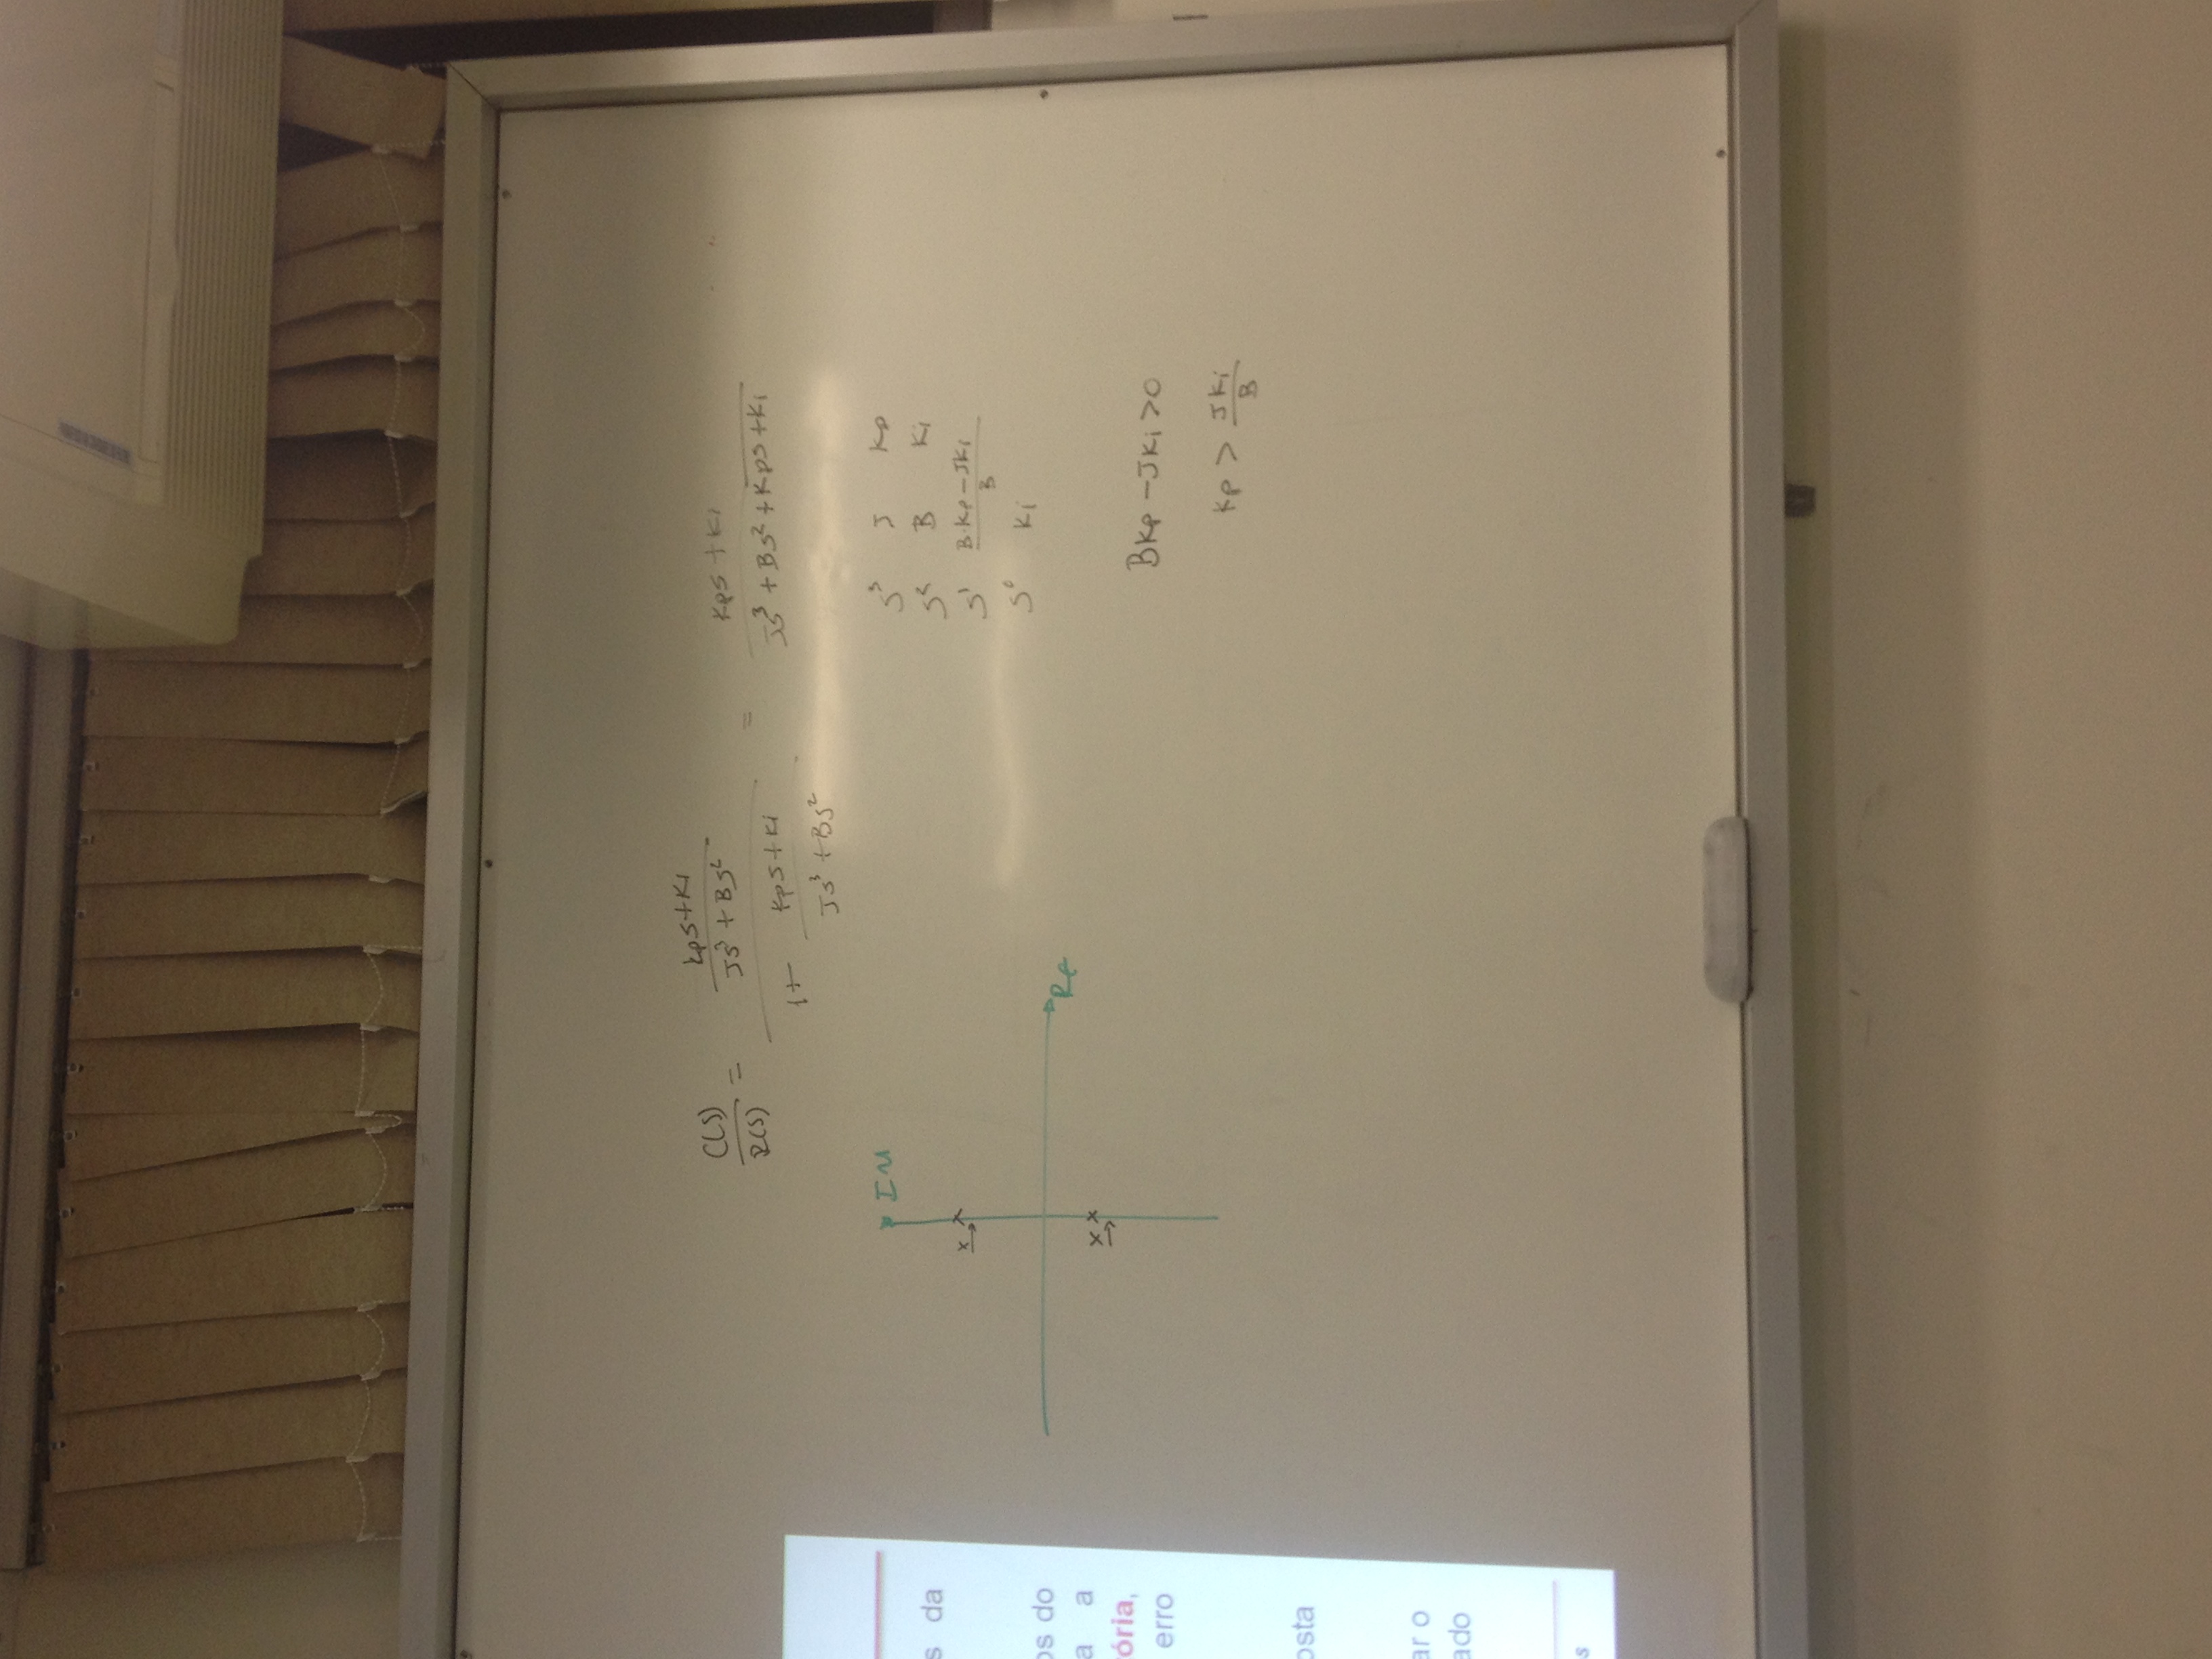 s da
os do
a a
tória,
erro
osta
ar o
ado
s
C(S)/R(S) = ((kps+Ki)/(Js³+Bs²))/(1+(kps+ki)/(Js³+Bs²)) = (kps+ki)/(Js³+Bs²+Kps+Ki)
IM
x x
Re
x x
S³ J Kp
S² B Ki
S¹ (B·Kp-JKi)/B
S⁰ Ki
BKp-JKi>0
Kp > JKi/B